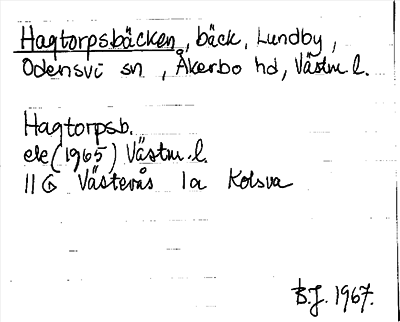 Hagtorpsbäcken, bäck, Lundby,
Odensvi sn, Åkerbo hd, Västm.l.
Hagtorpsb.
ek (1965) Västm.l.
11G Västerås 1a Kolsva
B.J. 1967.